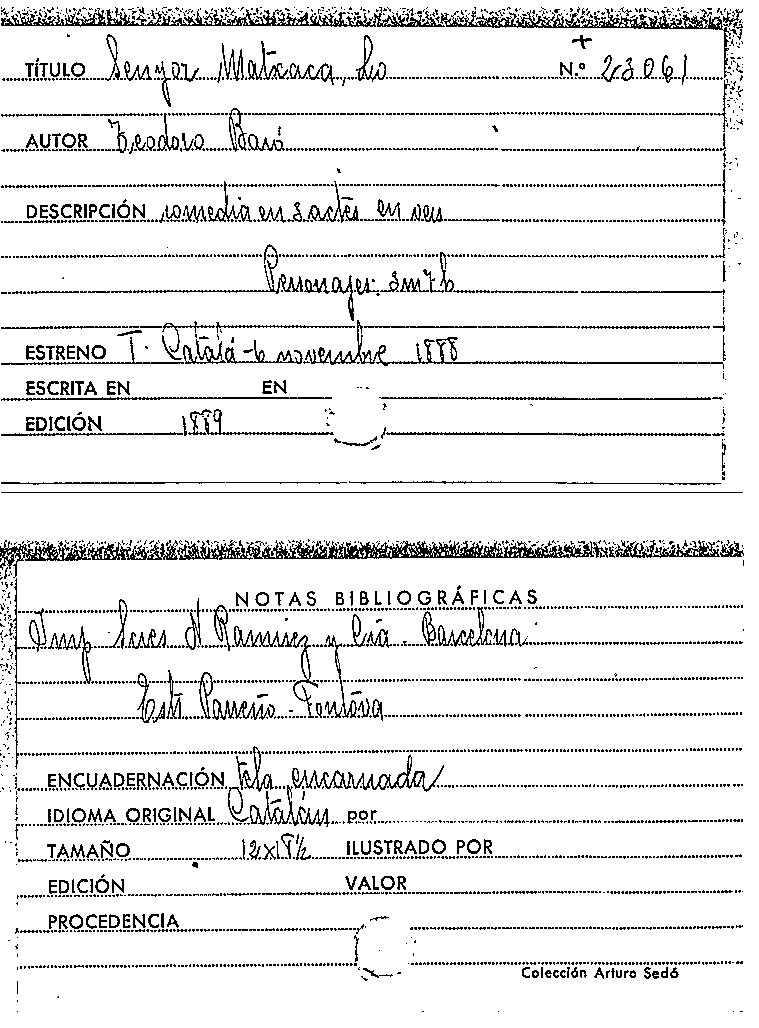 TÍTULO Senyor Matxaca, Lo N.º 23061
AUTOR Teodoro Baró
DESCRIPCIÓN comedia en 3 actes en
Personajes: 3 m 7 h
ESTRENO T. Catalá - 6 novembre 1888
ESCRITA EN EN
EDICIÓN 1889
NOTAS BIBLIOGRÁFICAS
Imp Sucs N Ramirez y Cia - Barcelona
Parreño - Fontova
ENCUADERNACIÓN tela encarnada
IDIOMA ORIGINAL Catalán por
TAMAÑO 12x18½ ILUSTRADO POR
EDICIÓN VALOR
PROCEDENCIA
Colección Arturo Sedó